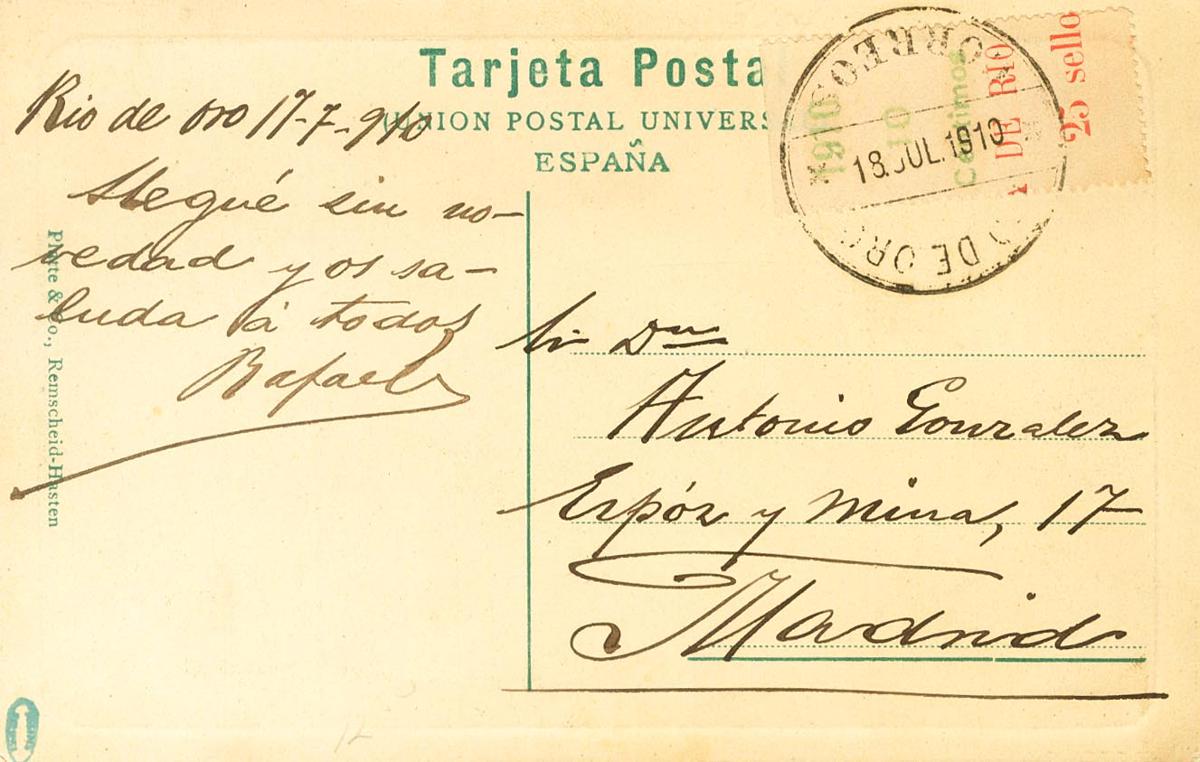 Tarjeta Posta
UNION POSTAL UNIVERS
ESPAÑA
Rio de oro 17-7-910
Llegué sin no-
vedad y os sa-
luda á todos
Rafael
CORREO
18.JUL.1910
DE ORO
1910
10
Centimos
DE RIO
25 sello
Sr Dn
Antonio Gonzalez
Espóz y Mina, 17
Madrid
Plutte & Co., Remscheid-Hasten